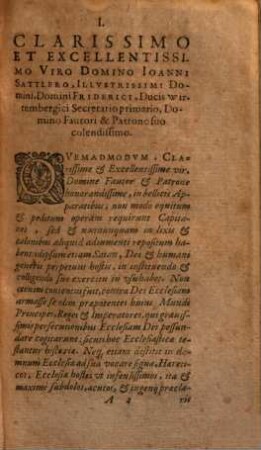 I.
CLARISSIMO
ET EXCELLENTISSI
MO VIRO DOMINO IOANNI
SATTLERO, ILLVSTRISSIMI Do-
mini, Domini FRIDERICI, Ducis Wir-
tembergici Secretario primario, Do-
mino Fautori & Patrono suo
colendissimo.
QVEMADMODVM, CLA-
rissime & Excellentissime vir,
Domine Fautor & Patrone
honorandissime, in bellicis Ap-
paratibus, non modo equitum
& peditum operam requirunt Capita-
nei, sed & nonnunquam in lixis &
calonibus aliquid adiumenti repositum ha-
bent: ipsum etiam Satan, Deo & humani
generis perpetuus hostis, in instituendo &
colligendo suo exercitu
enim contentus fuit, contra Dei Ecclesiam
armasse
Principes, Reges & Imperatores, qui
simis persecutionibus Ecclesiam Dei pessun-
dare cogitarunt: sicut hoc Ecclesiasticæ
testantur historiæ. Neq, etiam destitit in do-
mnum Ecclesiæ ad sua vocare signa, Hæreti-
cos, Ecclesiæ hostes vt infensissimos, ita &
maxime subdolos, acutos, & ingenij præcla-
A 4 ris